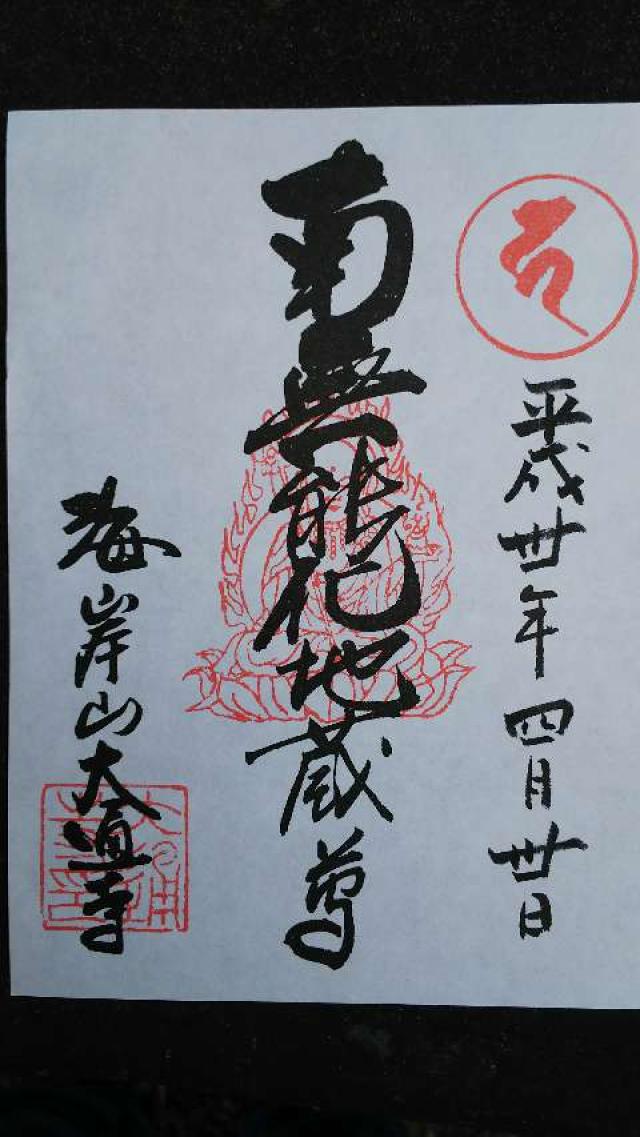 平成卅年四月卅日
南無能化地蔵尊
海岸山大直寺